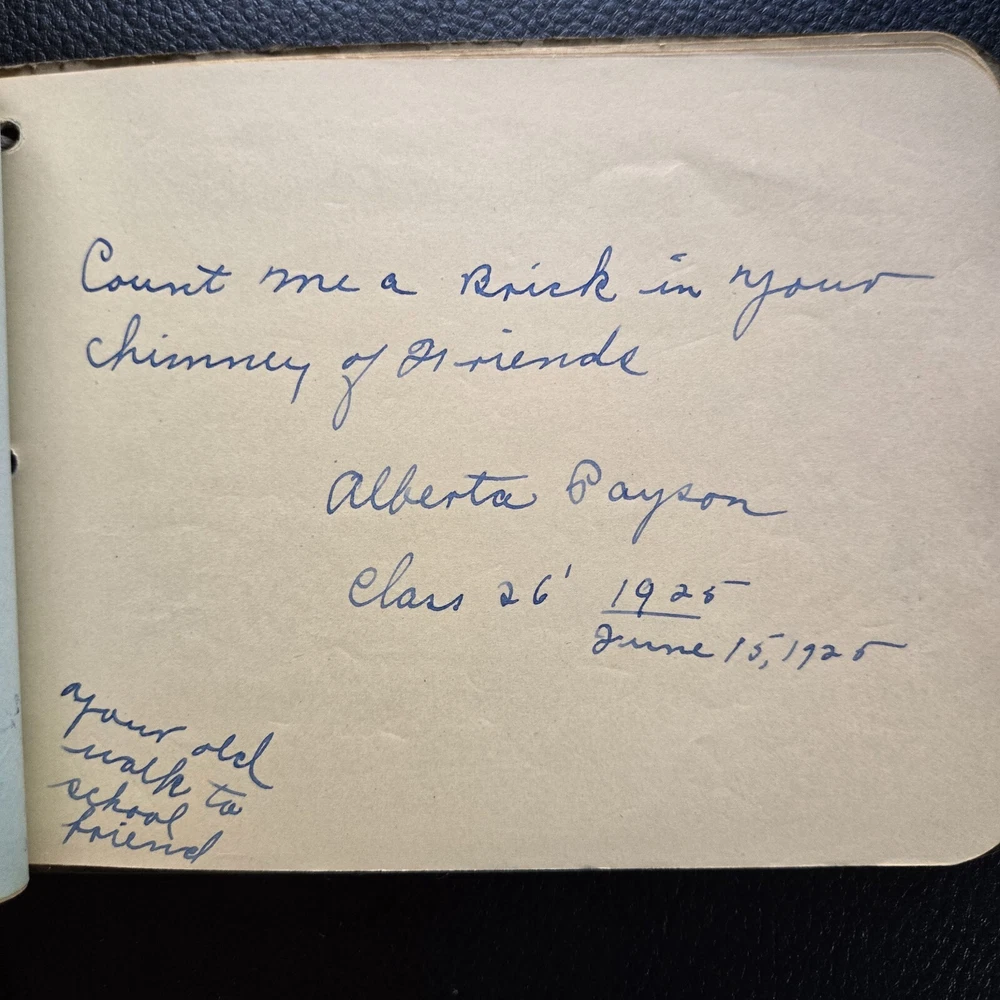 Count me a Brick in your
chimney of Friends
Alberta Payson
Class 26' 1925
June 15, 1925
your old
walk to
school
friend